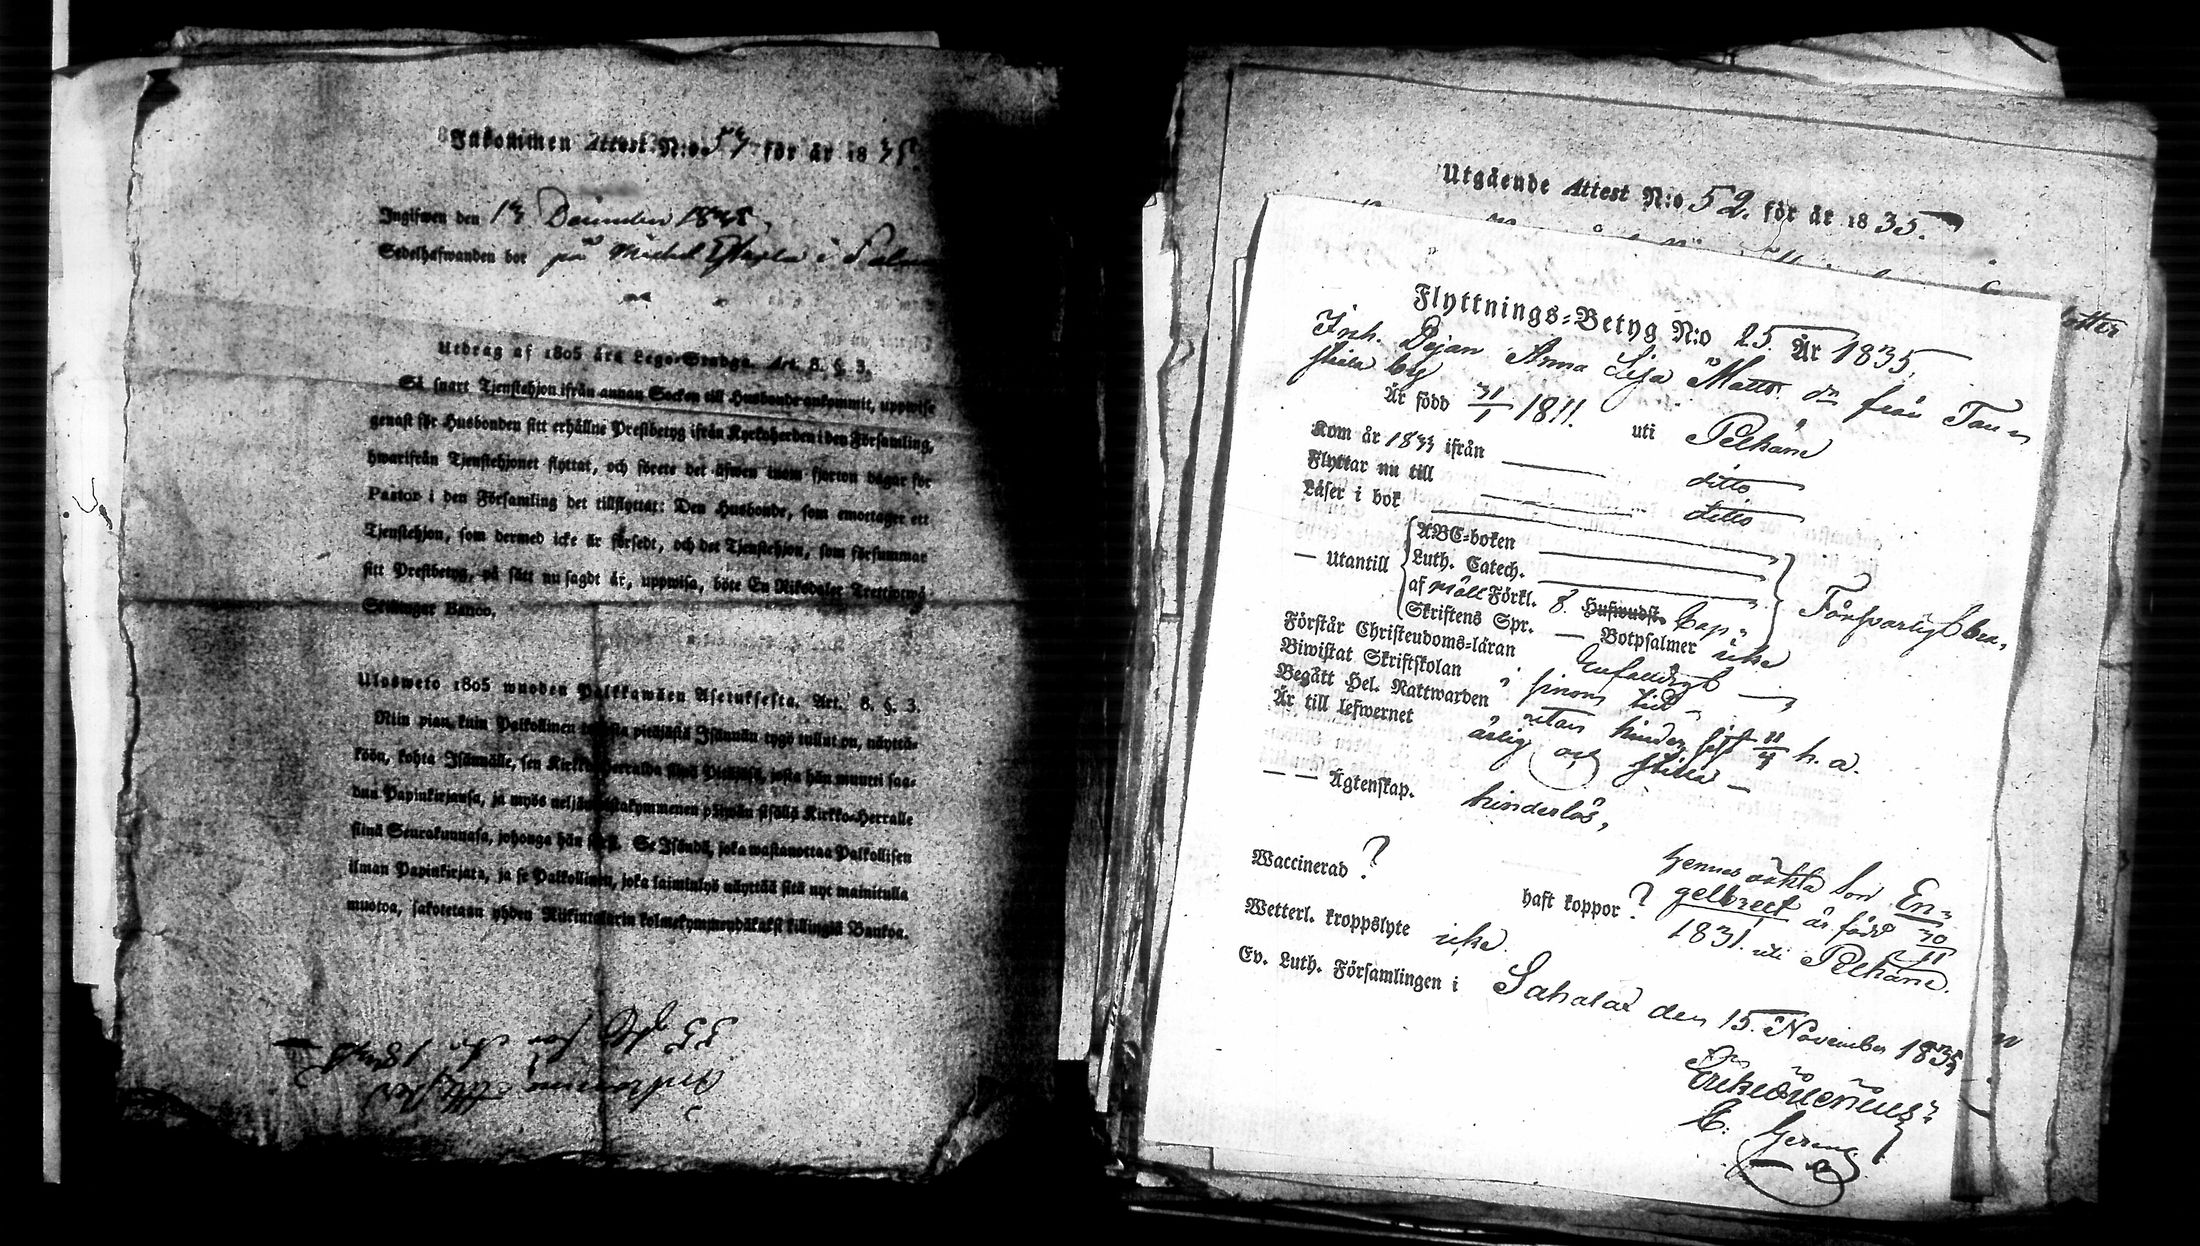 Inkommen Attest N:o 53 för år 1835
Ingifwen den 13 December 1835,
Sedelhafwanden bor på Mickel i
Utdrag af 1805 års Lego-Stadga. Art. 8. §. 3.
Så snart Tjenstehjon ifrån annan Socken till Husbonde ankommit, uppwise
genast för Husbonden sitt erhållne Prestbetyg ifrån Kyrkoherden i den Församling,
hwarifrån Tjenstehjonet flyttat, och förete det äfwen inom fjorton dagar för
Pastor i den Församling det tillflyttat: Den Husbonde, som emottager ett
Tjenstehjon, som dermed icke är försedt, och det Tjenstehjon, som försummar
sitt Prestbetyg, på sätt nu sagdt är, uppwisa, böte En Riksdaler Trettjotwå
Skillingar Banco.
Ulosweto 1805 wuoden Palkkawäen Asetuksesta. Art. 8. §. 3.
Niin pian, kuin Palkollinen toisesta pitäjästä Isännän tygö tullut on, näyttä-
köön, kohta Isännälle, sen Kirkko-Herralda siinä Pitäjäsä, josta hän muutti saa-
dun Papinkirjansa, ja myös neljäntoistakymmenen päiwän sisällä Kirkko-Herralle
siinä Seurakunnasa, johonga hän Se Isändä, joka wastanottaa Palkollisen
ilman Papinkirjata, ja se Palkollinen, joka laiminlyö näyttää sitä nyt mainitulla
muotoa, sakotetaan yhden Riikintalerin kolmekymmendäkaksi killingiä Bankoa.
53 för år 1835
Inkomne Attester
Utgående Attest N:o 52. för år 1835.
Flyttnings-Betyg N:o 25. År 1835.
Inh. Pejan Anna Lisa Matts dr från Tau=
stiala by
Är född 31/1 1811. uti Pelkäne
Kom år 1833 ifrån ditto
Flyttar nu till ditto
Läser i bok
— Utantill
ABC-boken
Luth. Catech.
af Förkl. 8. Hufwudst. Cap:
Skriftens Spr. — Botpsalmer icke
Försvarligt bra,
Förstår Christendoms-läran Enfaldigt
Biwistat Skriftskolan i sinom tid
Begått Hel. Nattwarden utan hinder sist h. a.
Är till lefwernet ärlig och stilla —
— — Ägtenskap. hinderlös,
Waccinerad ? haft koppor ?
Hennes oäkta son En=
gelbrect är född 30/11
1831. uti Pelkäne.
Wetterl. kroppslyte icke.
Ev. Luth. Församlingen i Sahalax den 15. November 1835
C: